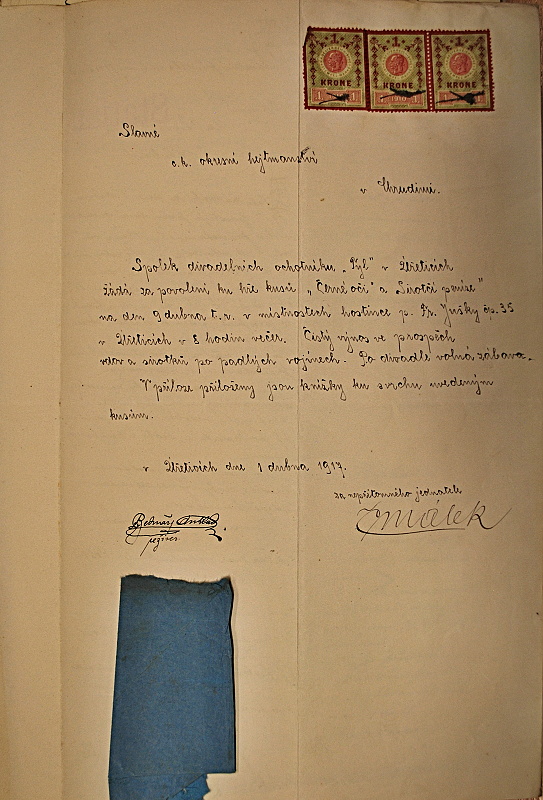 1 1 1
KRONE KRONE KRONE
1 1 1 1
Slavné
c.k. okresní hejtmanství
v Chrudimi.
Spolek divadelních ochotníku „Tyl" v Úřeticích
žádá za povolení ku hře kusů „Černé oči" a „Sirotčí peníze"
na den 9 dubna t.r. v místnostech hostince p. Fr. Jušky čp. 35
v Úřeticích v 8 hodin večer. Čistý výnos ve prospěch
vdov a sirotků po padlých vojínech. Po divadle volná zábava.
V příloze přiloženy jsou knížky ku svrchu uvedeným
kusům.
v Úřeticích dne 1 dubna 1917.
za nepřítomného jednatele
režiser